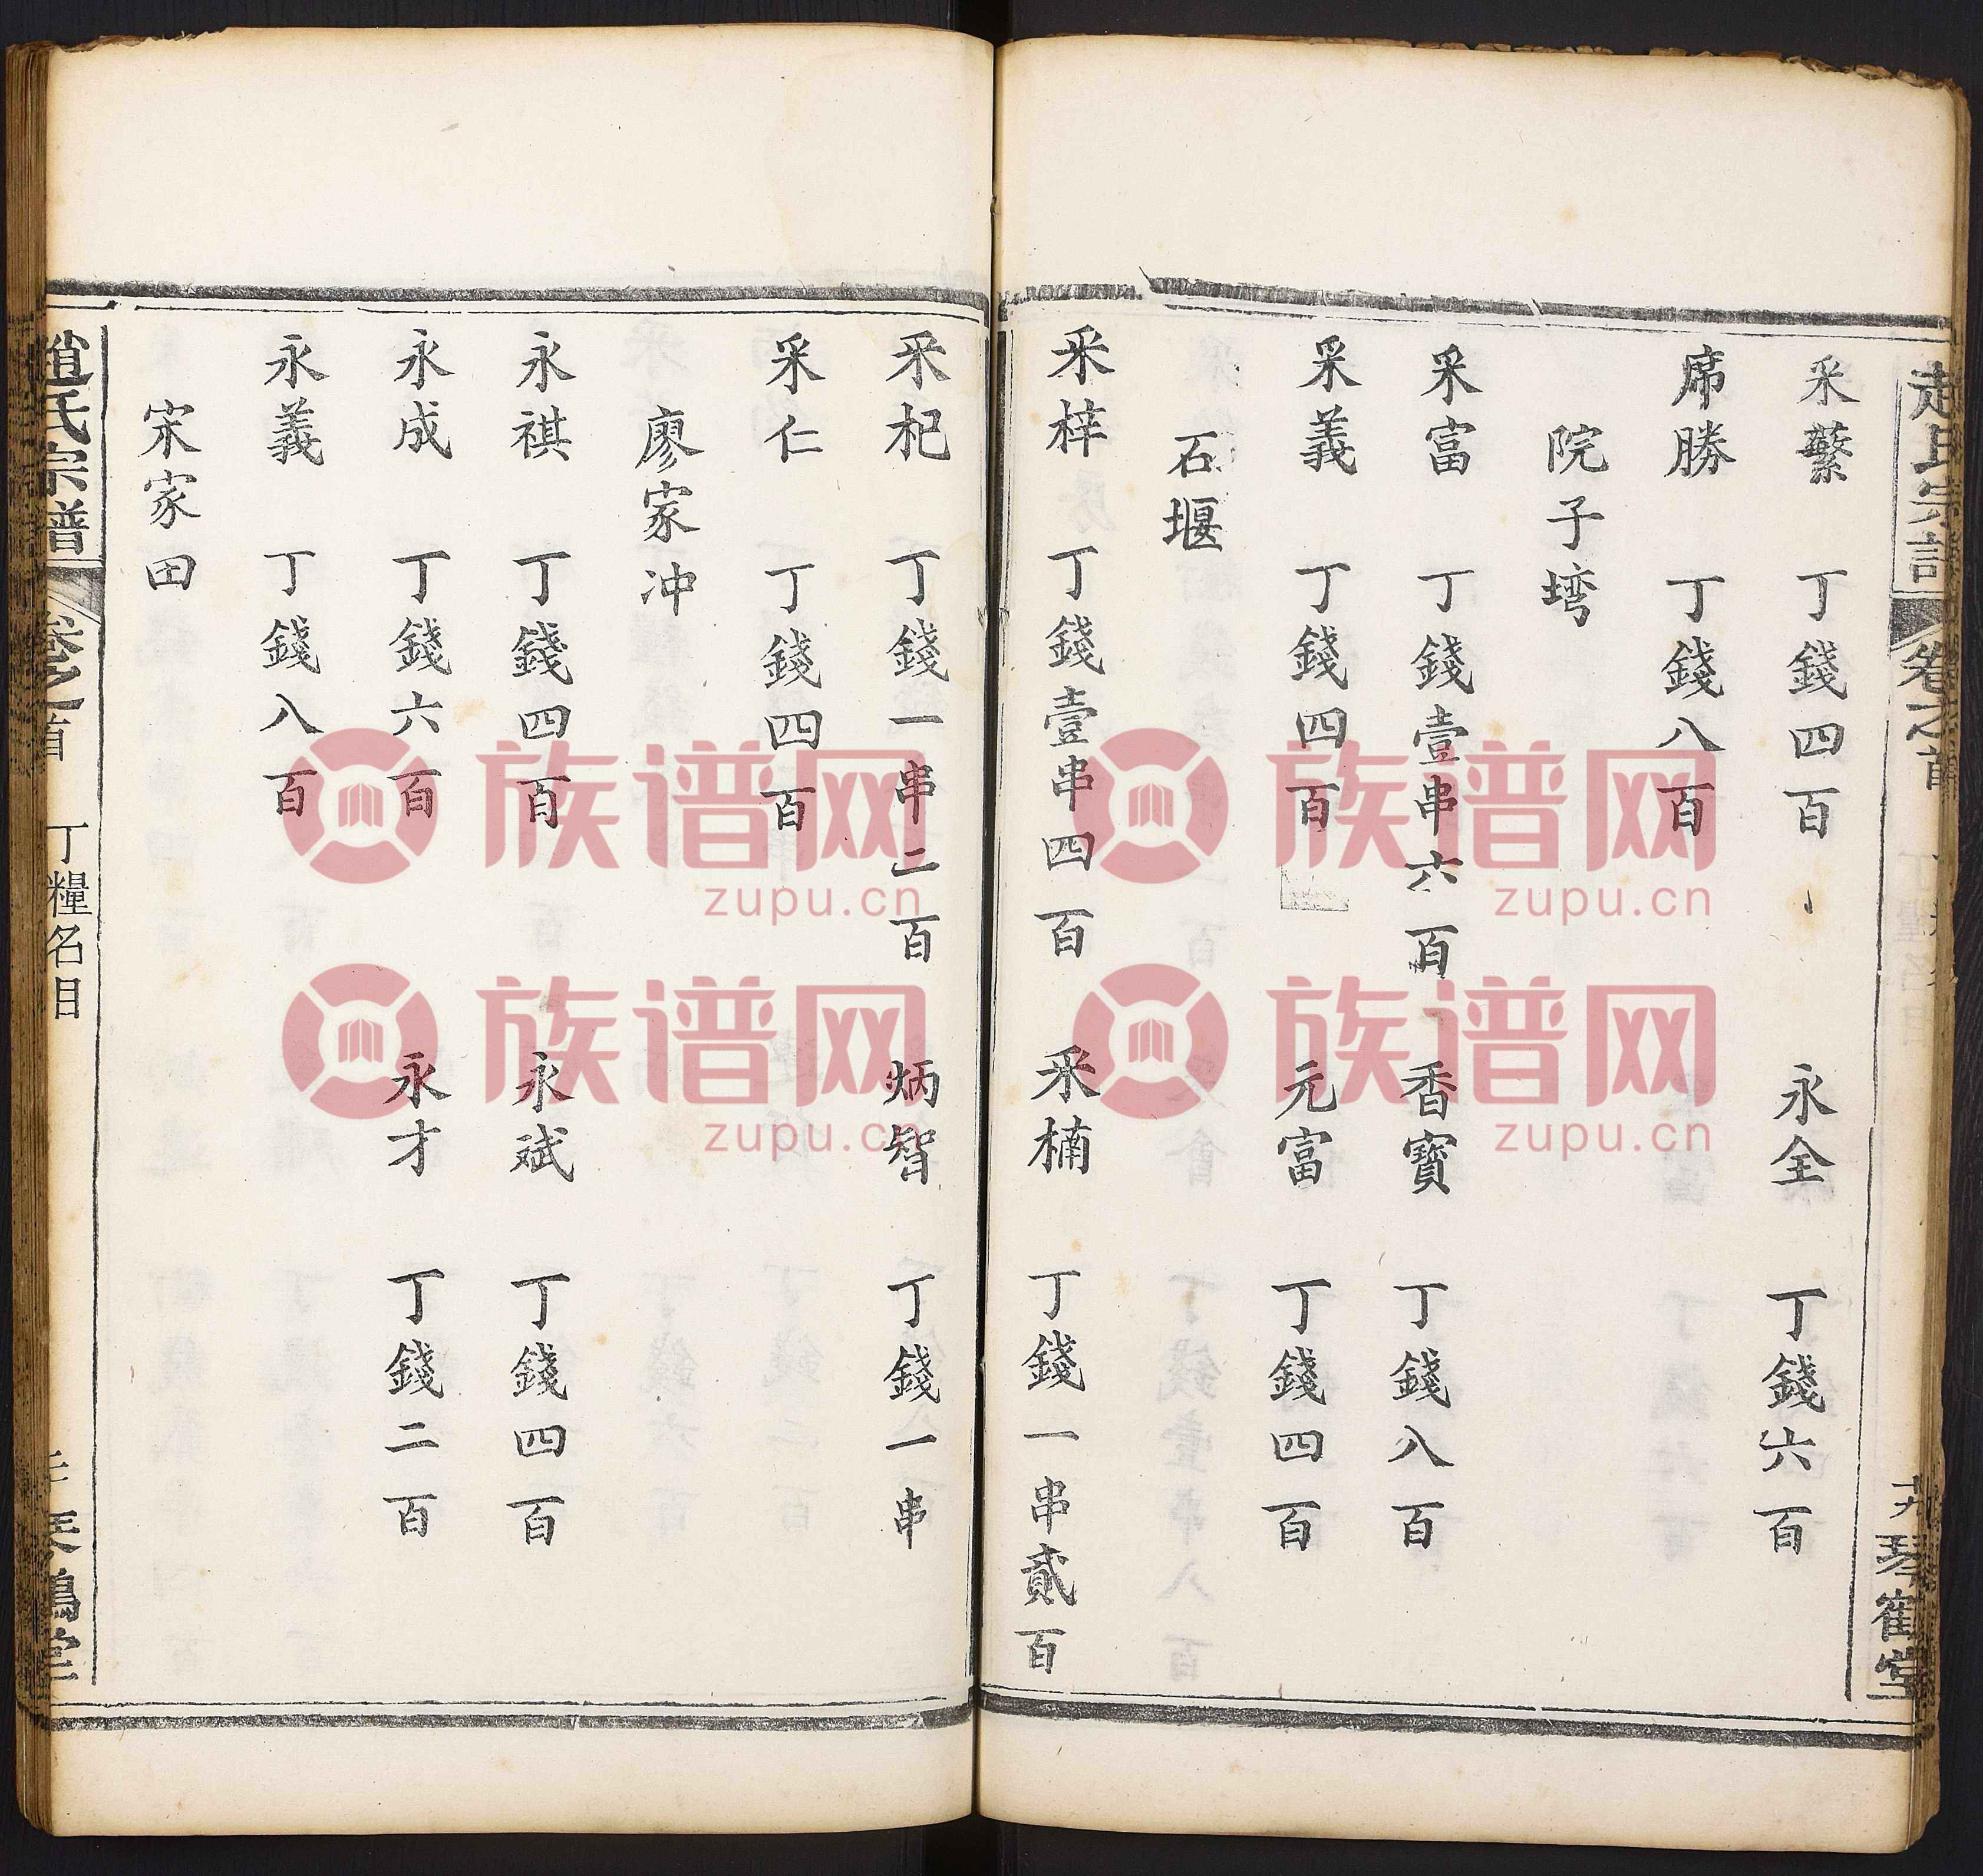 趙氏宗譜 卷之首
十九 琴鶴堂
采蘩 丁錢四百 永全 丁錢六百
席勝 丁錢八百
院子塆
采富 丁錢壹串六百 香寶 丁錢八百
采義 丁錢四百 元富 丁錢四百
石堰
采梓 丁錢壹串四百 采楠 丁錢一串貳百
采杞 丁錢一串二百 炳智 丁錢一串
采仁 丁錢四百
廖家冲
永祺 丁錢四百 永斌 丁錢四百
永成 丁錢六百 永才 丁錢二百
永義 丁錢八百
宋家田
趙氏宗譜 卷之首 丁糧名目 琴鶴堂
族谱网
zupu.cn
族谱网
zupu.cn
族谱网
zupu.cn
族谱网
zupu.cn